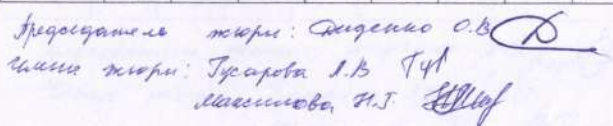 Председатель жюри: Диденко О.В
члены жюри: Гусарова Л.В
Максимова Н.Г.